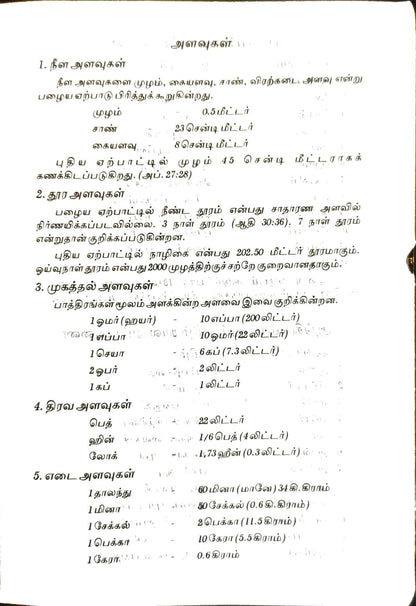 அளவுகள்
1. நீள அளவுகள்
நீள அளவுகளை முழம், கையளவு, சாண், விரற்கடை அளவு என்று
பழைய ஏற்பாடு பிரித்துக் கூறுகின்றது.
முழம் - 0.5 மீட்டர்
சாண் 23 சென்டி மீட்டர்
கையளவு 8 சென்டி மீட்டர்
புதிய ஏற்பாட்டில் முழம் 45 சென்டி மீட்டராகக்
கணக்கிடப்படுகிறது. (அப். 27:28)
2. தூர அளவுகள்
பழைய ஏற்பாட்டில் நீண்ட தூரம் என்பது சாதாரண அளவில்
நிர்ணயிக்கப்படவில்லை. 3 நாள் தூரம் (ஆதி 30:36). 7 நாள் தூரம்
என்றுதான் குறிக்கப்படுகின்றன.
புதிய ஏற்பாட்டில் நாழிகை என்பது 202.50 மீட்டர் தூரமாகும்.
ஓய்வுநாள் தூரம் என்பது 2000 முழத்திற்குச்சற்றே குறைவானதாகும்.
3. முகத்தல் அளவுகள்
பாத்திரங்கள் மூலம் அளக்கின்ற அளவை இவை குறிக்கின்றன.
1 ஓமர் (ஹயர்) - 10 எப்பா (200 லிட்டர்)
1 எப்பா 10 ஓமர் (22 லிட்டர்)
1 செயா - 6 கப் (7.3 லிட்டர்)
2 ஓபர் 2 லிட்டர்
1 கப் - 1 லிட்டர்
4. திரவ அளவுகள்
பெத் 22 லிட்டர்
ஹின் - 1/6 பெத் (4 லிட்டர்)
லோக் - 1.73 ஹின் (0.3 லிட்டர்)
5. எடை அளவுகள்
1 தாலந்து 60 மினா (மானே) 34 கி.கிராம்
1 மினா 50 சேக்கல் (0.6 கி.கிராம்)
1 சேக்கல் - 2 பெக்கா (11.5 கிராம்)
1 பெக்கா - 10 கேரா (5.5 கிராம்)
1 கேரா - 0.6 கிராம்